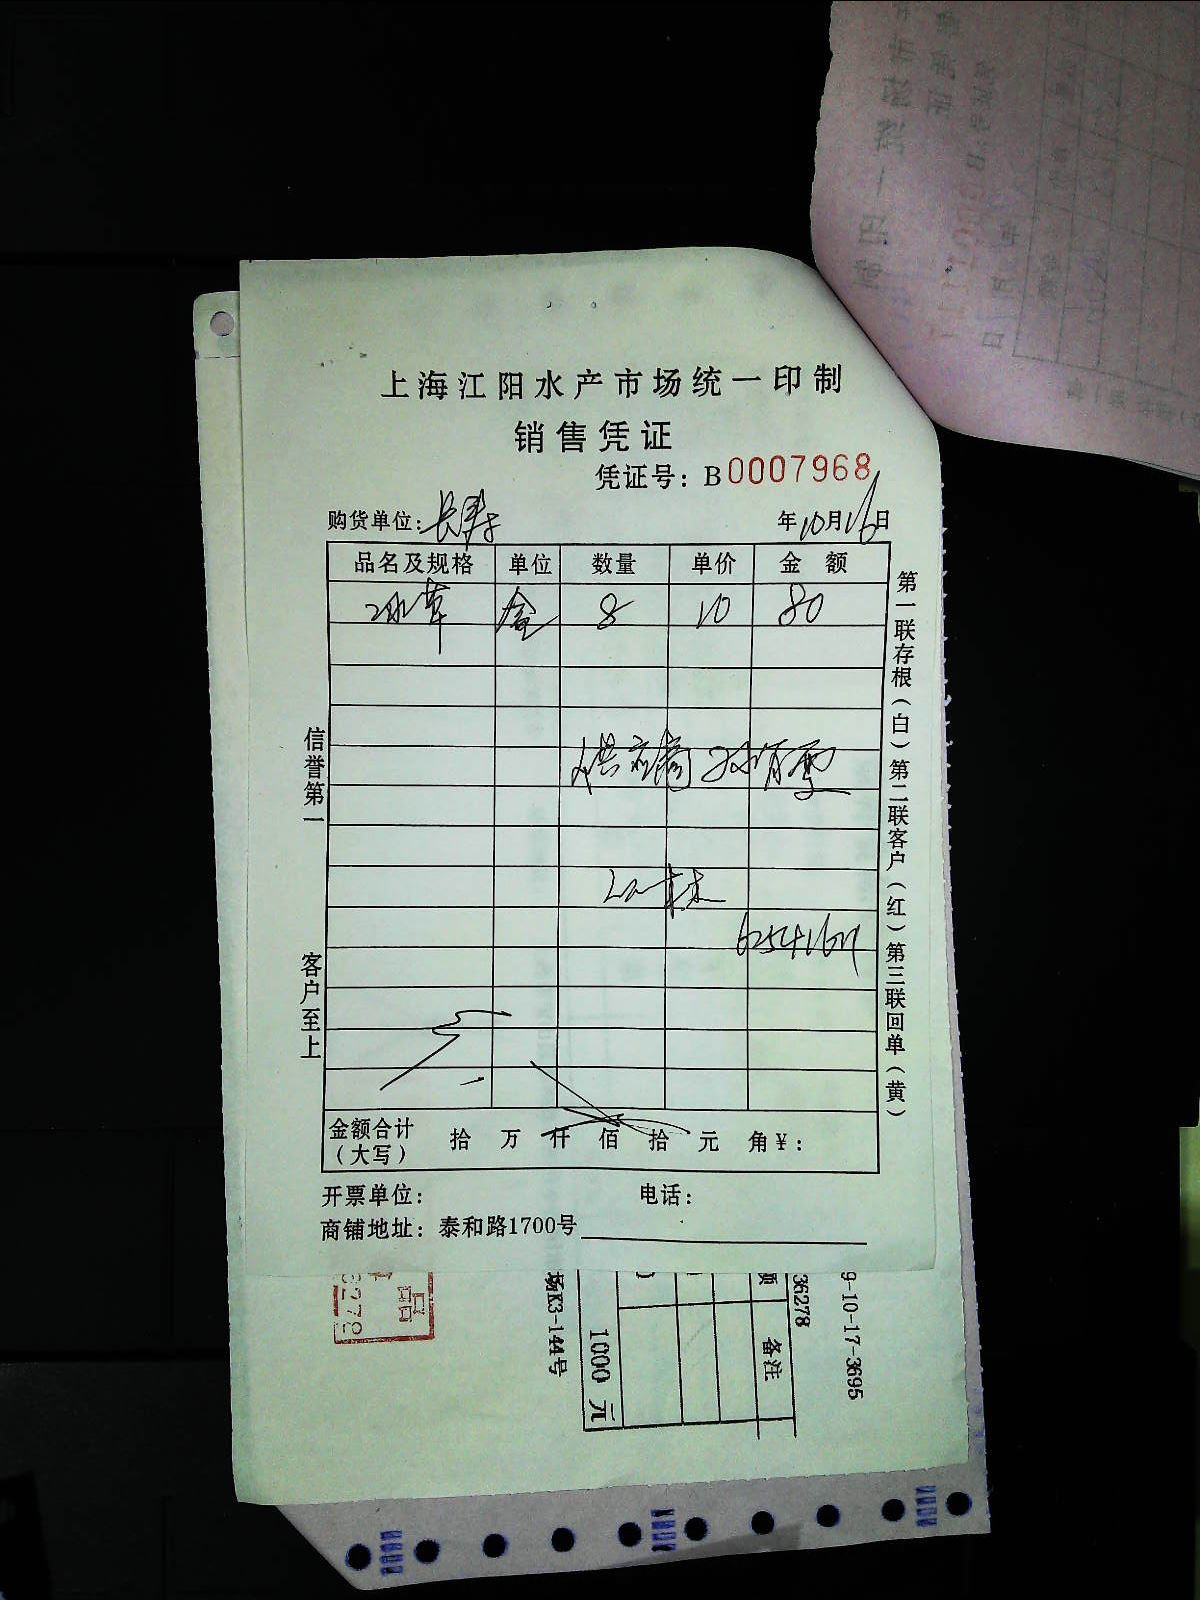 上海江阳水产市场统一印制
销售凭证
凭证号：B0007968
购货单位：长寿 年10月16日
品名及规格 单位 数量 单价 金额
冰草 盒 8 10 80
供应商 孙肖雪
62541671
金额合计（大写） 拾 万 仟 佰 拾 元 角 ¥：
开票单位： 电话：
商铺地址：泰和路1700号
信誉第一 客户至上
第一联存根（白）第二联客户（红）第三联回单（黄）
9-10-17-3695
36278
额 备注
1000 元
场K3-144号